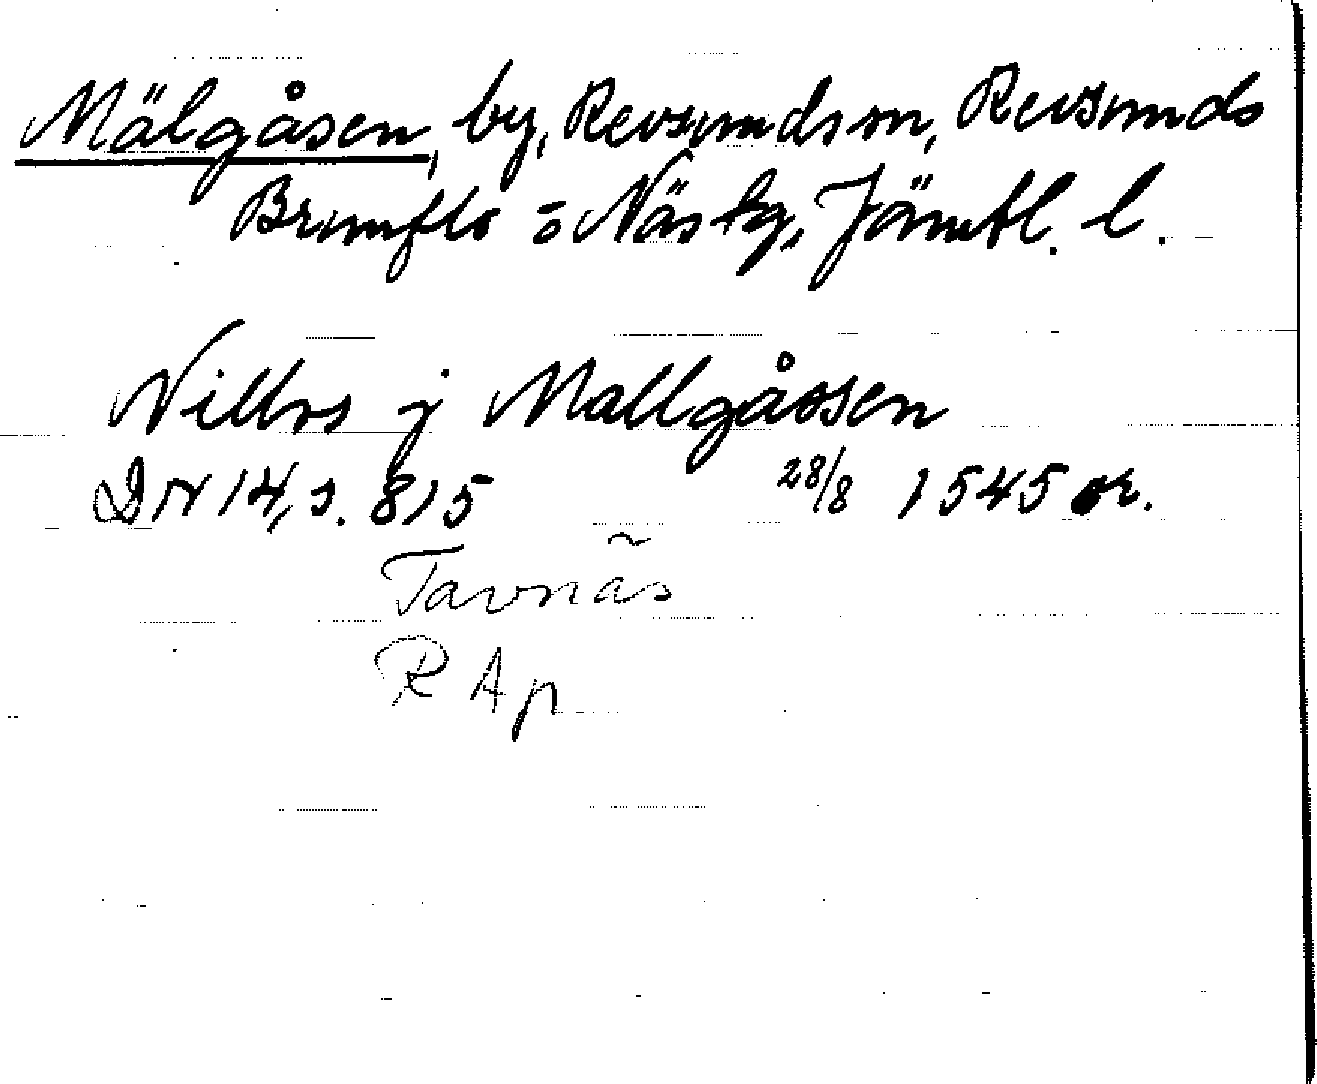 Mälgåsen, by, Revsunds sn, Revsunds
Brunflo o Näs tg, Jämtl. l.
Nillss j Mallgåssen
DN 14, s. 815 28/8 1545 or.
Tavnäs
R Ap